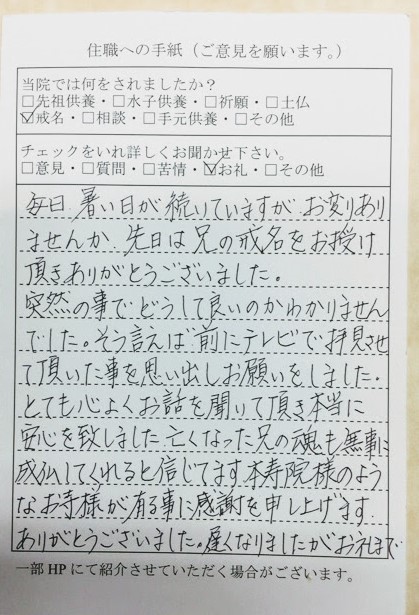 住職への手紙（ご意見を願います。）
当院では何をされましたか？
□先祖供養・□水子供養・□祈願・□土仏
☑戒名・□相談・□手元供養・□その他
チェックをいれ詳しくお聞かせ下さい。
□意見・□質問・□苦情・☑お礼・□その他
毎日、暑い日が続いていますが、お変りあり
ませんか、先日は兄の戒名をお授け
頂きありがとうございました。
突然の事でどうして良いのかわかりません
でした。そう言えば前にテレビで拝見させ
て頂いた事を思い出しお願いをしました。
とても心よくお話を聞いて頂き本当に
安心を致しました 亡くなった兄の魂も無事に
成仏してくれると信じてます 本寿院様のよう
なお寺様が有る事に感謝を申し上げます
ありがとうございました。遅くなりましたがお礼まで
一部 HP にて紹介させていただく場合がございます。